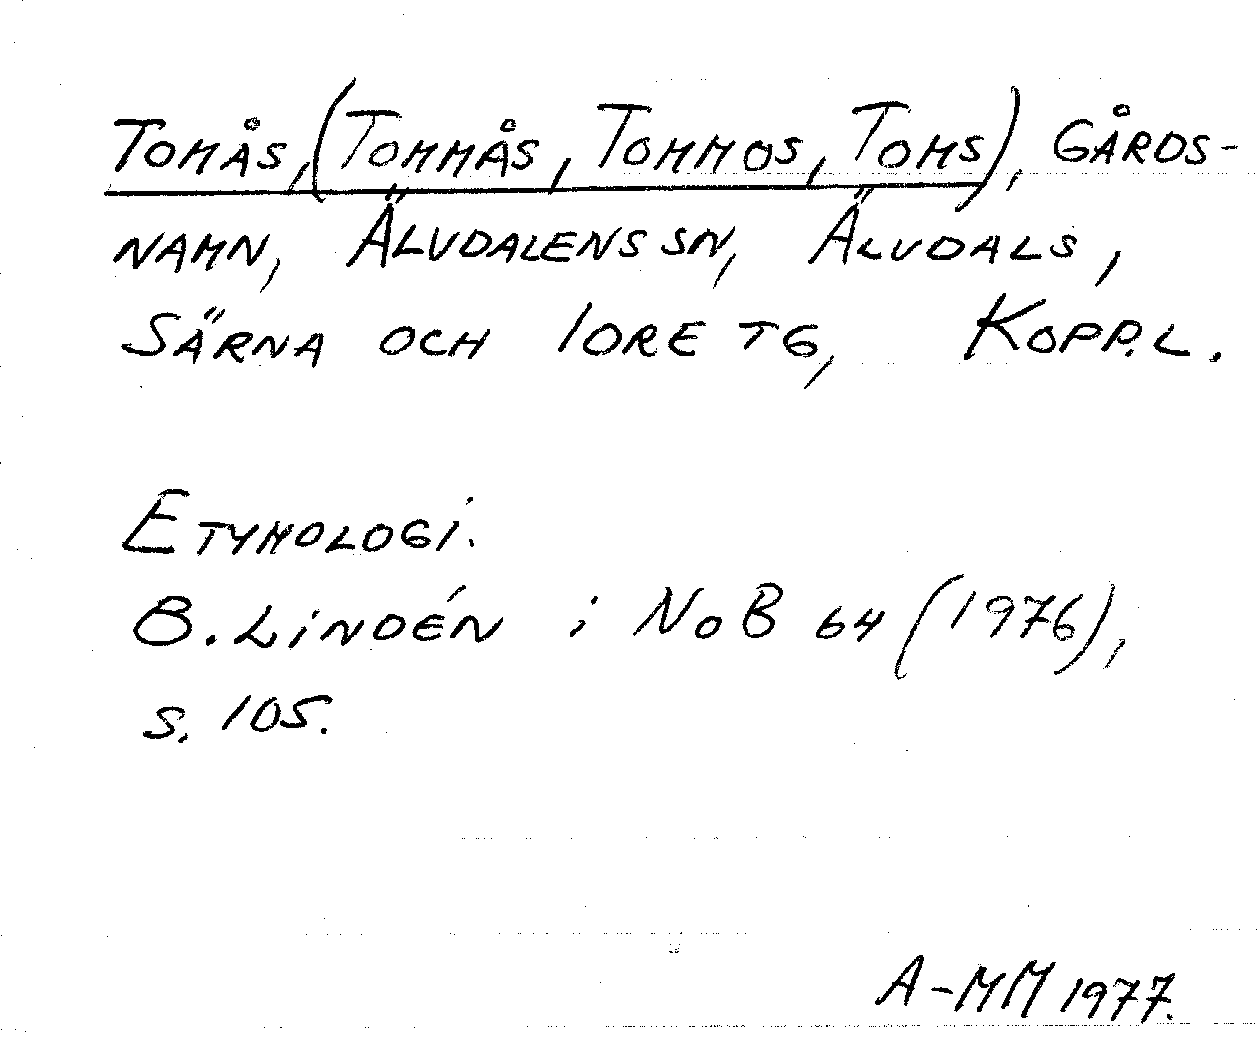 TOMÅS, (TOMMÅS, TOMMOS, TOMS), GÅRDS-
NAMN, ÄLVDALENS SN, ÄLVDALS,
SÄRNA OCH IDRE TG, KOPP.L.
ETYMOLOGI.
B. LINDÉN i NoB 64 (1976),
S. 105.
A-MM 1977.